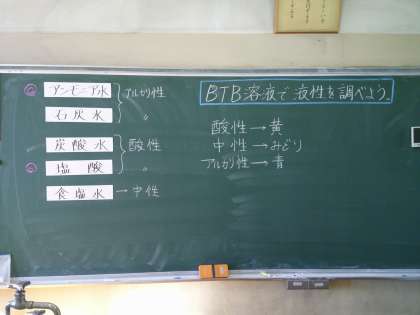 BTB溶液で液性を調べよう。
アンモニア水 アルカリ性
石灰水 〃
炭酸水 酸性
塩酸 〃
食塩水 → 中性
酸性 → 黄
中性 → みどり
アルカリ性 → 青